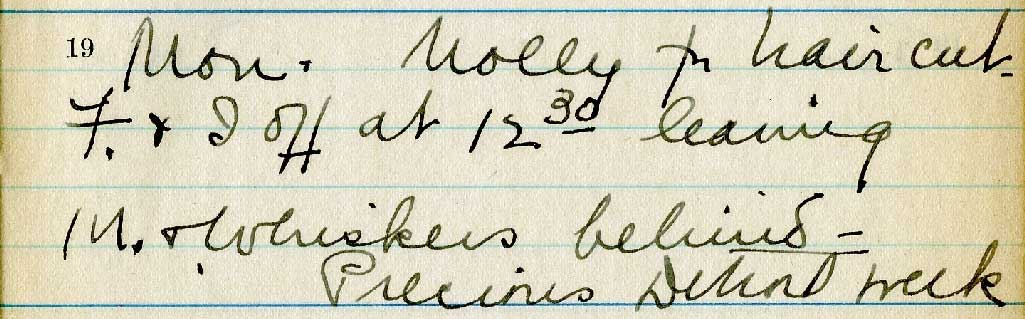 19 Mon. Molly for haircut.
F. & I off at 12 30 leaving
M. & Whiskers behind -
Precious Detroit week